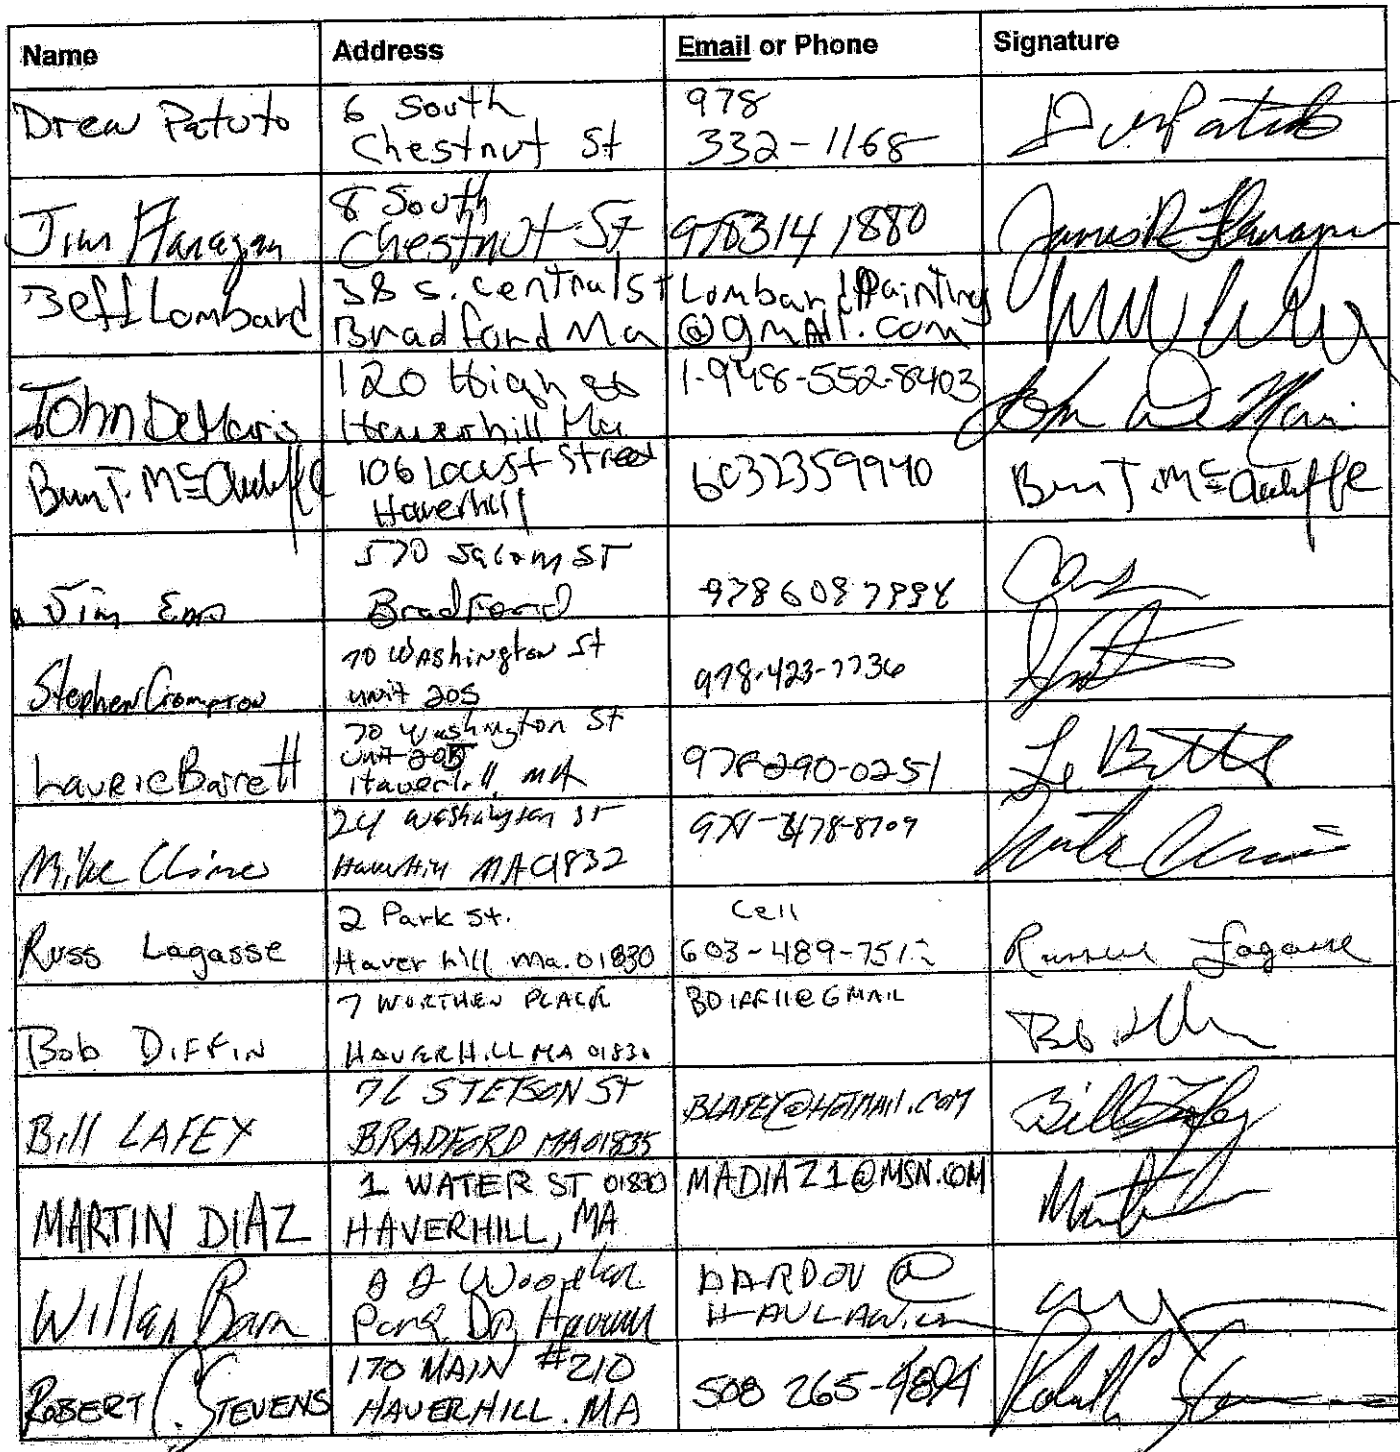 Name Address Email or Phone Signature
Drew Patuto 6 South Chestnut St 978 332-1168
Jim Flanagan 8 South Chestnut St 978314 1880 James R Flanagan
Jeff Lombard 38 s. central st Bradford Ma Lombard Painting @gmail.com
John DeMaris 120 High st Haverhill Ma 1-948-552-8403
T. McAuliffe 106 Locust Street Haverhill 6032359940 T. McAuliffe
Jim 570 Salem ST Bradford
Stephen Crompton 70 Washington St unit 205 978-423-7736
Laurie Barrett 70 Washington St unit 205 Haverhill, MA 978-290-0251
Mike Cline 24 Washington St Haverhill MA 01832
Russ Lagasse 2 Park St. Haverhill Ma. 01830 Cell 603-489-751 Lagasse
Bob DIFFIN 7 WORTHEN PLACE HAVERHILL MA 0183 BDIFF11@GMAIL Bob
Bill LAFEY STETSON ST BRADFORD MA 01835 BLAFEY@HOTMAIL.COM Bill Lafey
MARTIN DIAZ 1 WATER ST 01830 HAVERHILL, MA MADIAZ1@MSN.COM
Park Dr @
ROBERT C. STEVENS 170 MAIN #210 HAVERHILL. MA 508 265-